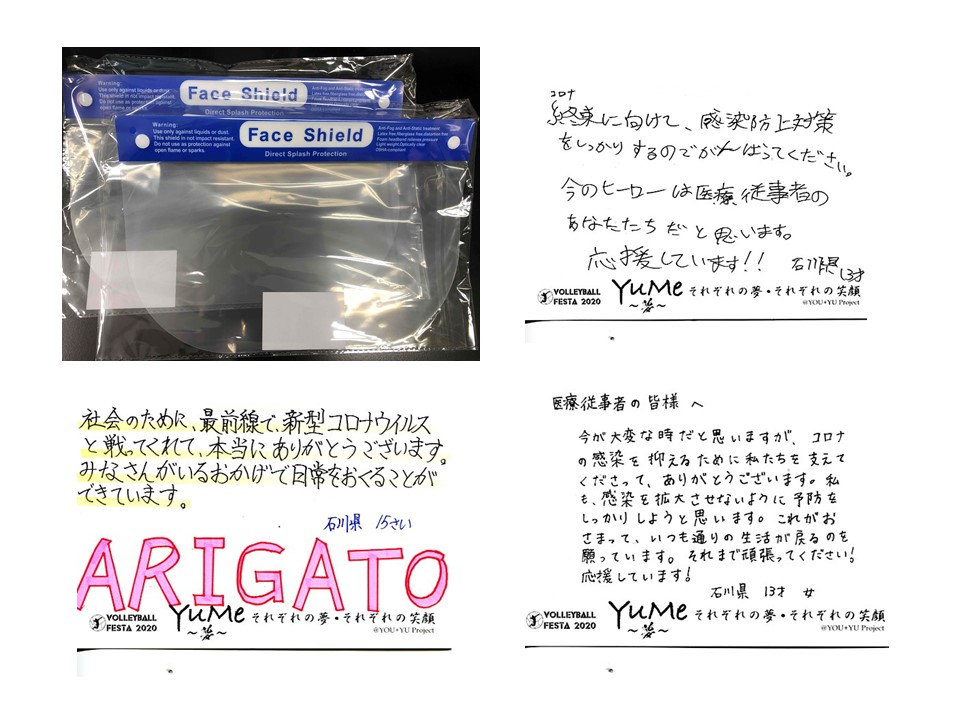 Warning:
Use only against liquids or dust.
This shield in not impact resistant.
Do not use as protection against
open flame or sparks.
Face Shield
Direct Splash Protection
Anti-Fog and Anti-Static treatment
Latex free,fiberglass free,distortion free
Light weight,Optically clear
Warning:
Use only against liquids or dust.
This shield in not impact resistant.
Do not use as protection against
open flame or sparks.
Face Shield
Direct Splash Protection
Anti-Fog and Anti-Static treatment
Latex free,fiberglass free,distortion free
Foam headband relieves pressure
Light weight,Optically clear
OSHA compliant
コロナ
終束に向けて、感染防止対策
をしっかりするのでがんばってください。
今のヒーローは医療従事者の
あなたたちだと思います。
応援しています!!
石川県 13才
VOLLEYBALL
FESTA 2020
YuMe
~夢~
それぞれの夢・それぞれの笑顔
@YOU+YU Project
社会のために、最前線で、新型コロナウイルス
と戦ってくれて、本当にありがとうございます。
みなさんがいるおかげで日常をおくることが
できています。
石川県 15さい
ARIGATO
VOLLEYBALL
FESTA 2020
YuMe
~夢~
それぞれの夢・それぞれの笑顔
@YOU+YU Project
医療従事者の皆様へ
今が大変な時だと思いますが、コロナ
の感染を抑えるために私たちを支えて
くださって、ありがとうございます。私
も、感染を拡大させないように予防を
しっかりしようと思います。これがお
さまって、いつも通りの生活が戻るのを
願っています。それまで頑張ってください!
応援しています!
石川県 13才 女
VOLLEYBALL
FESTA 2020
YuMe
~夢~
それぞれの夢・それぞれの笑顔
@YOU+YU Project